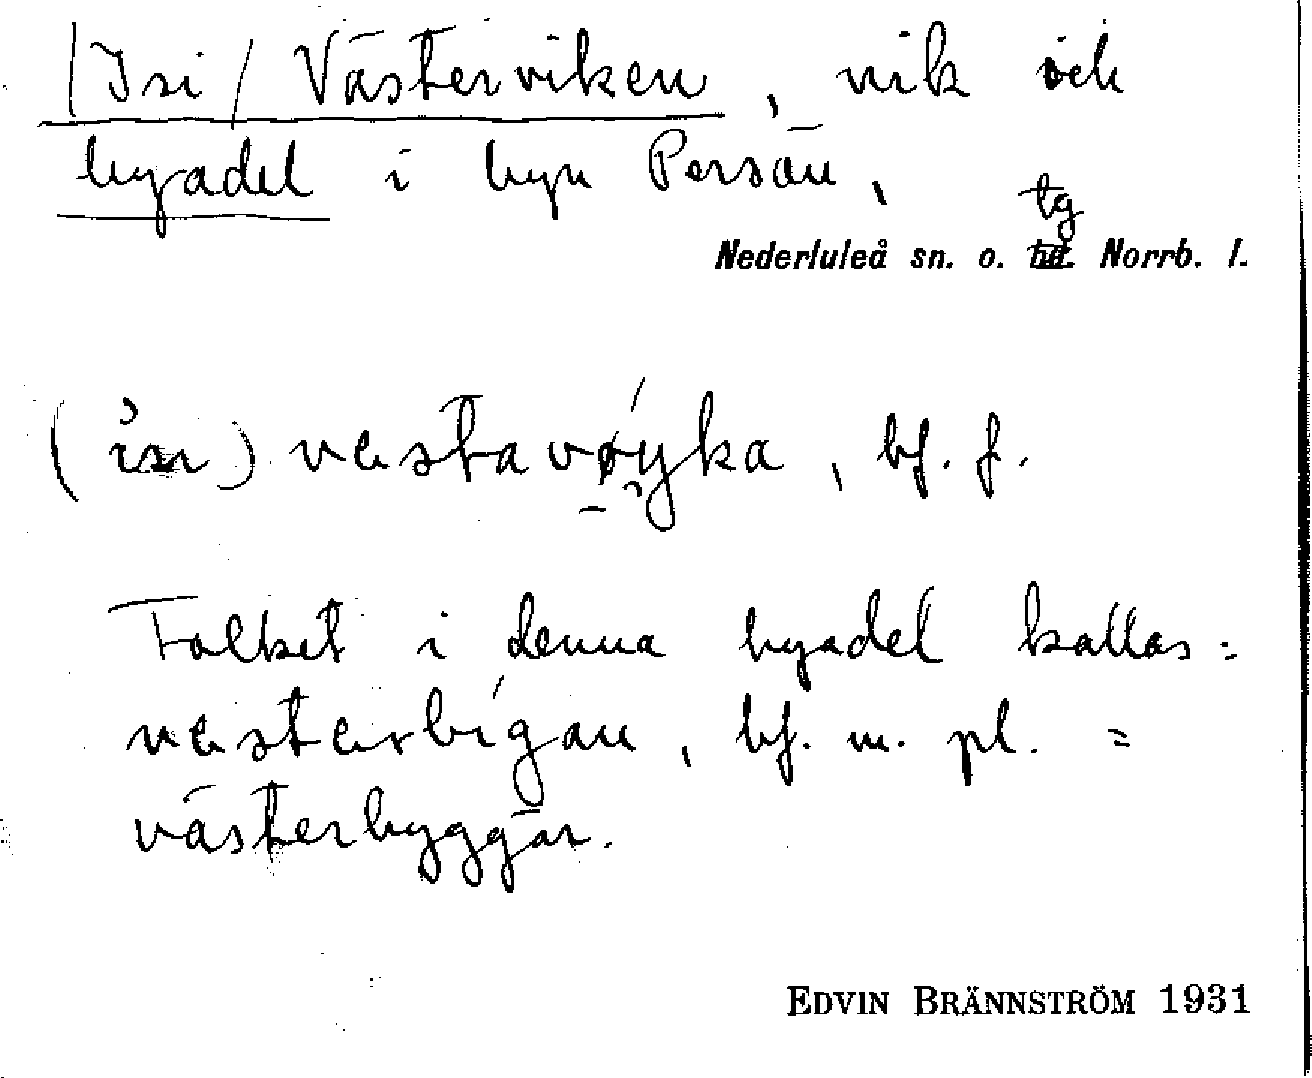 /Isi/ Västerviken, vik och
byadel i byn Persön,
tg
Nederluleå sn. o. hd. Norrb. l.
(isı) vestavøyka, bf. f.
Folket i denna byadel kallas:
vesterbígan, bf. m. pl. =
västerbyggar.
EDVIN BRÄNNSTRÖM 1931